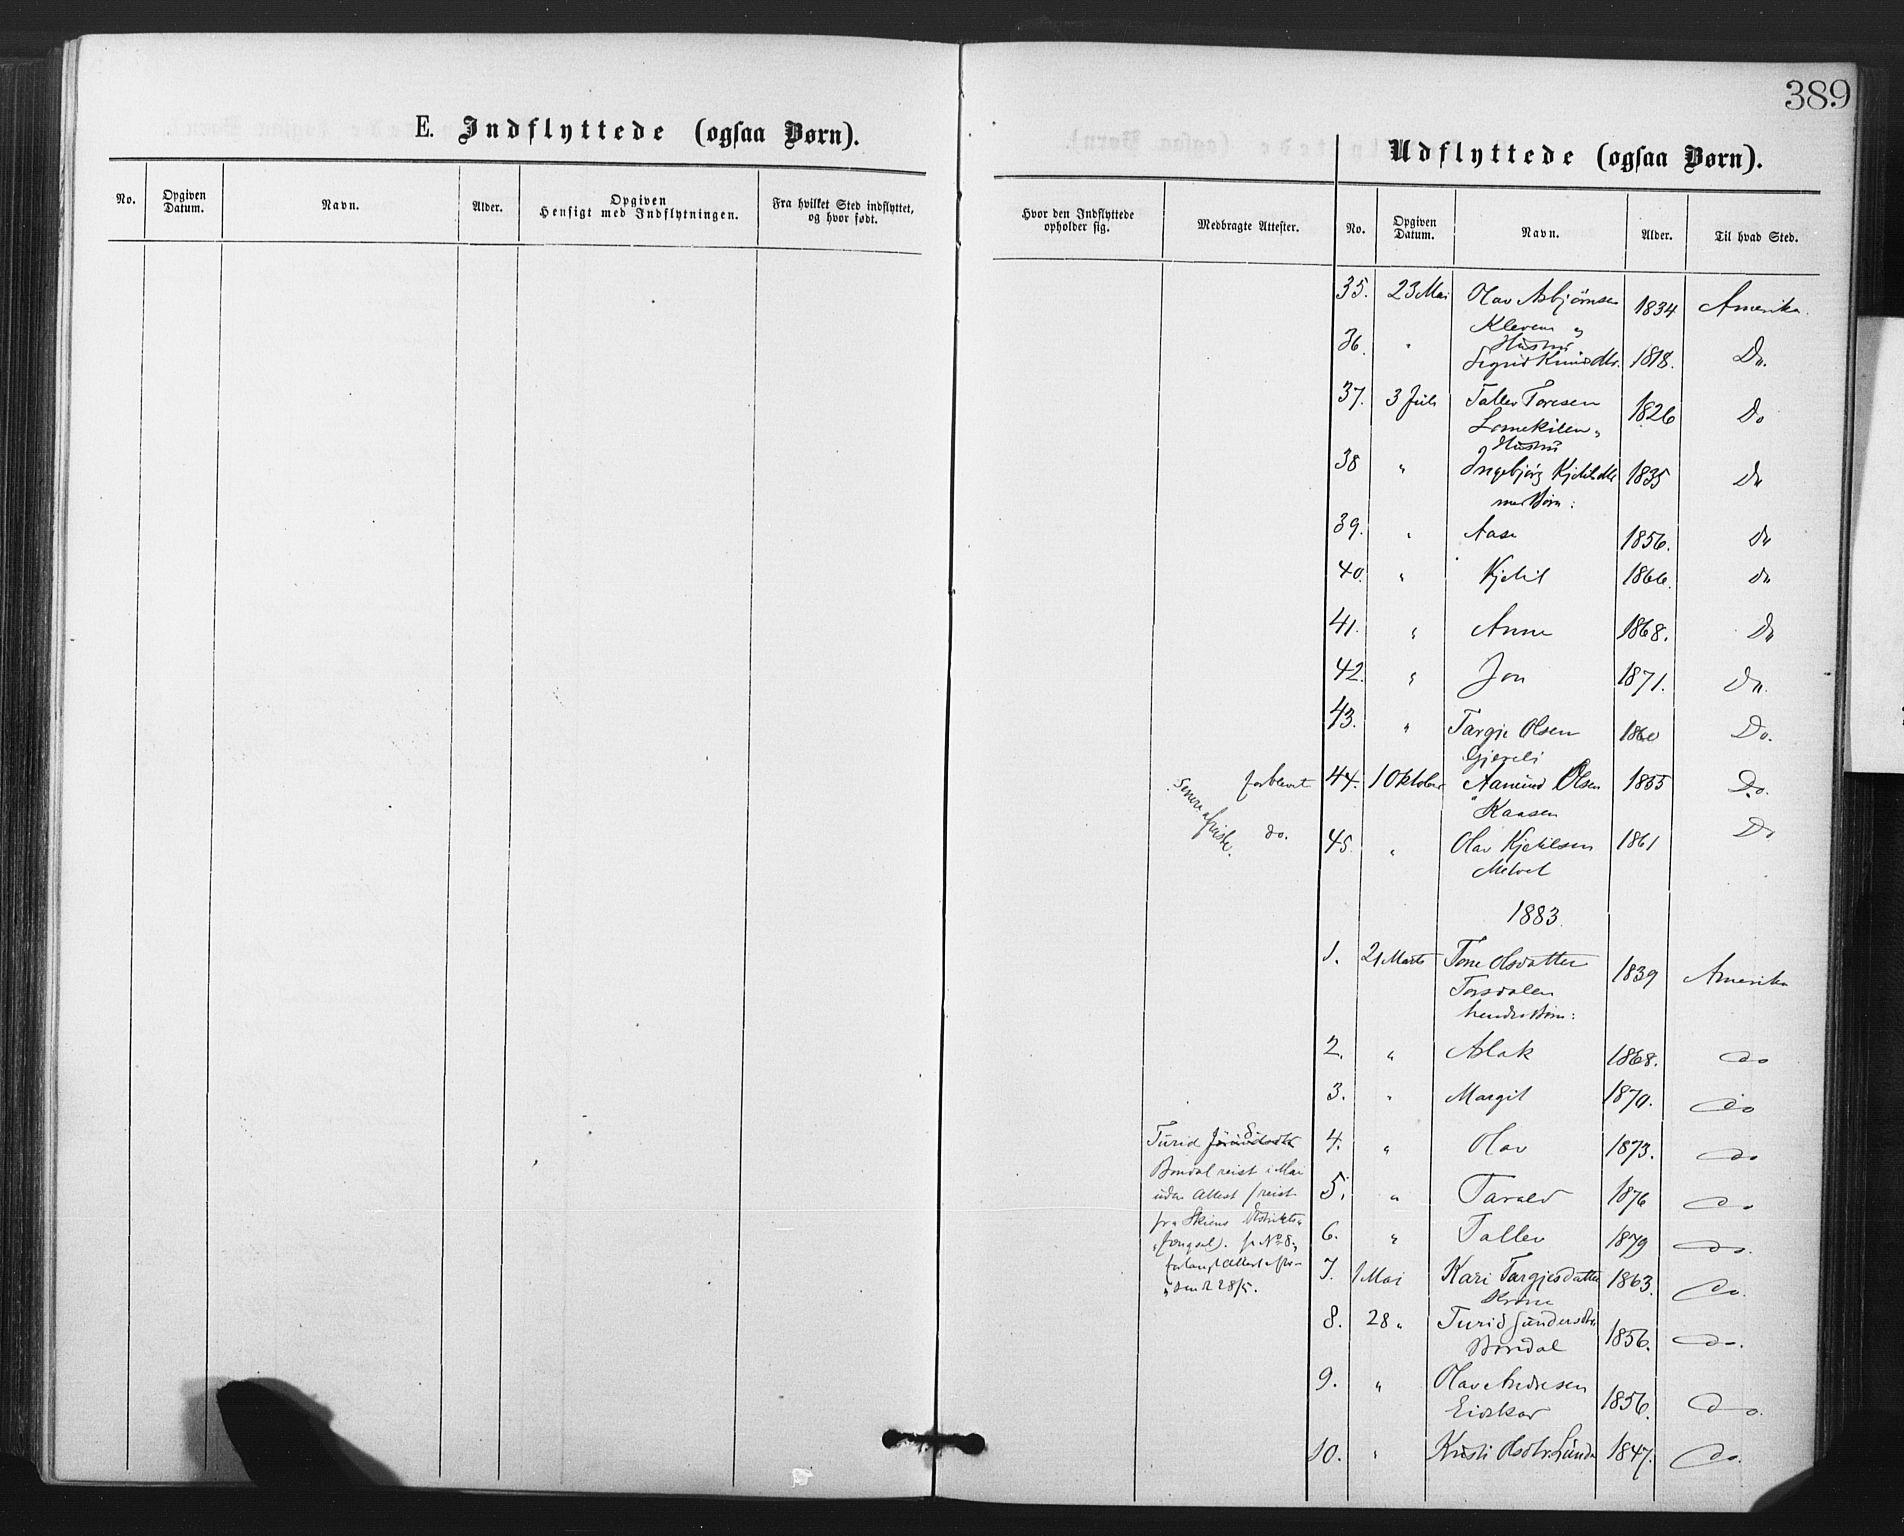 389
E. Indflyttede (ogsaa Børn).
No.
Opgiven Datum.
Navn.
Alder.
Opgiven Hensigt med Indflytningen.
Fra hvilket Sted indflyttet, og hvor født.
Udflyttede (ogsaa Børn).
Hvor den Indflyttede opholder sig.
Medbragte Attester.
No.
Opgiven Datum.
Navn.
Alder.
Til hvad Sted.
35. 23 Mai Olav Asbjørnsen 1834 Amerika.
Kleven og
Hustru
36. " Sigrid Knudsdtr. 1818. Do.
37. 3 Juli Tallev Toresen 1826 Do
Hustru
38 " Ingebjørg Kjetilsdtr 1835 Do
med Børn:
39. " Aase 1856. Do
40. " Kjetil 1866. Do
41. " Anne 1868. Do
42. " Jon 1871. Do.
43. " Targje Olsen 1860 Do.
forblevet 44. 1 Oktober Aamund Olsen 1855 Do.
Kaasen
do. 45. " Olav Kjetilsen 1861 Do
1883.
1. 21 Marts Tone Olsdatter 1839 Amerika
Torsdalen
hendes Børn:
2. " Aslak 1868. do
3. " Margit 1870. do
4. " Olav 1873. do
5. " Tarald 1876 do
6. " Tallev 1879 do.
7. 1 Mai Kari Targjesdatter 1863. do.
8. 28 " Turid Gundersdtr 1856. do.
Bondal
9. " Olav Andresen 1856. do.
Eidskar
10. " Kristi Olsdtr. Lunde 1847. do.
Turid
Bondal reist i Mai
uden Attest
fra Skiens Distrikts-